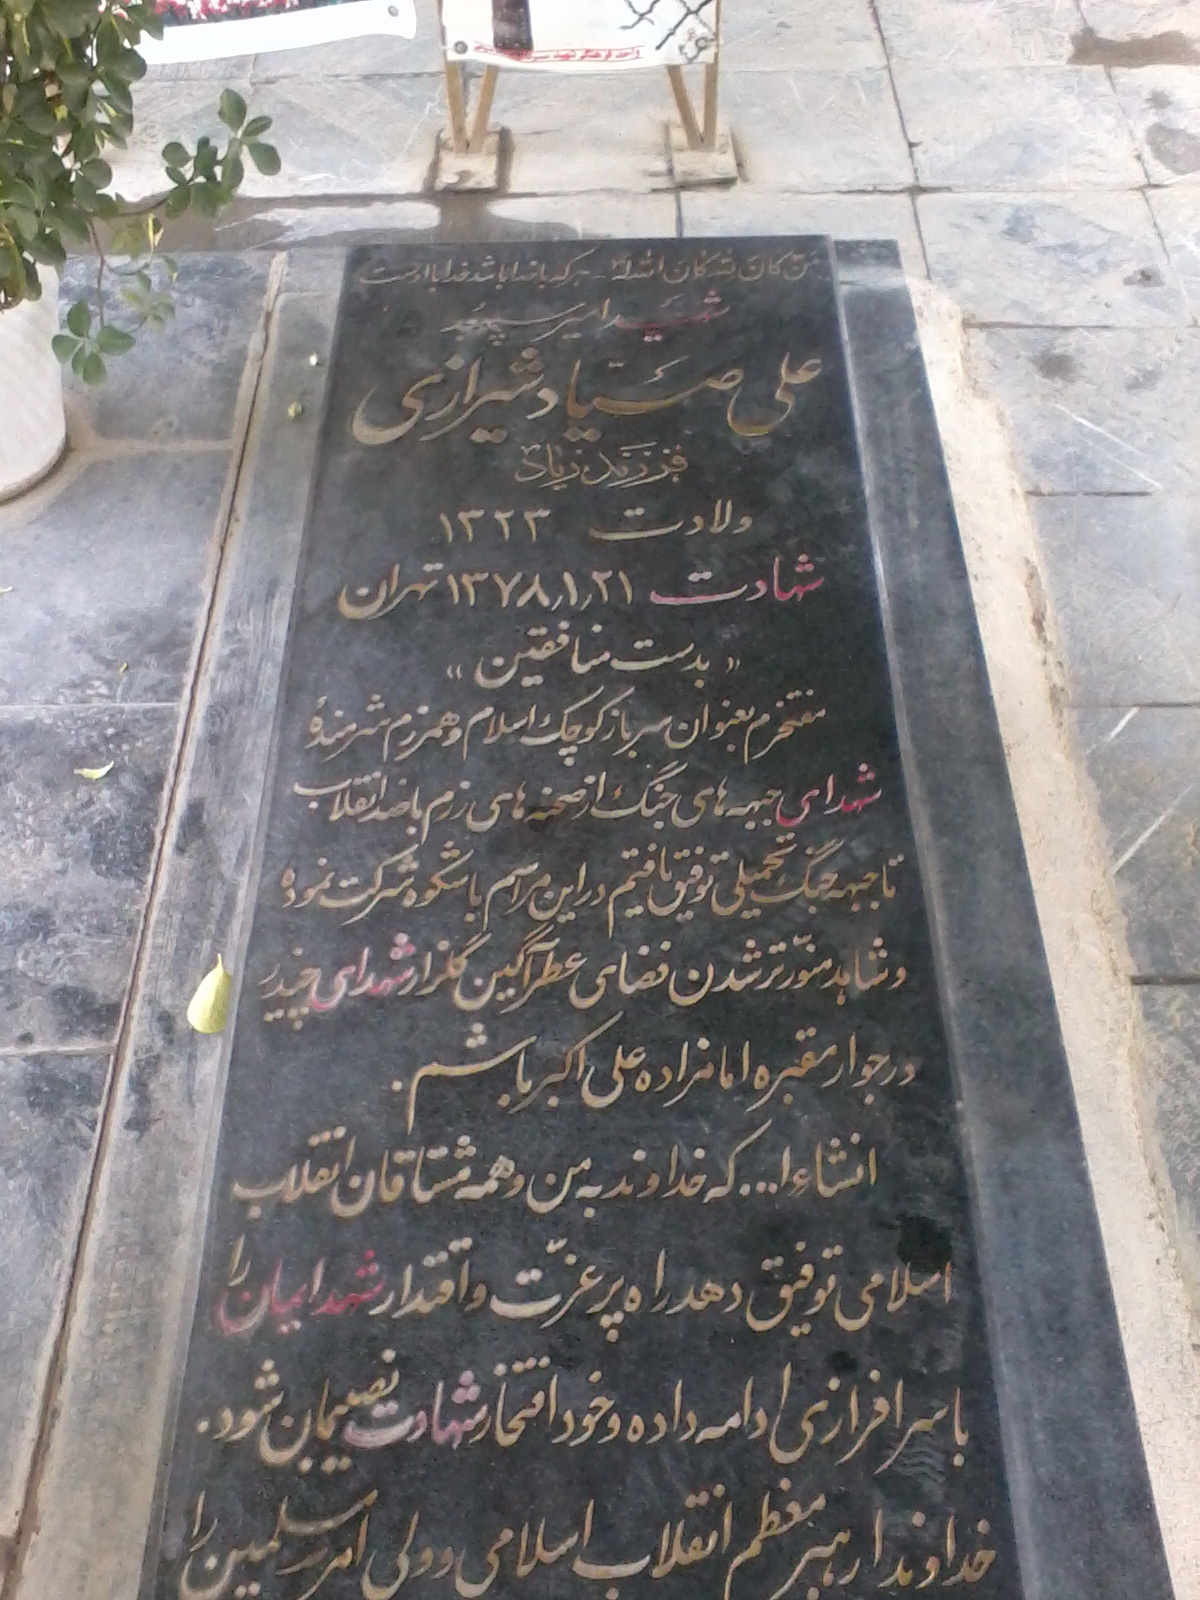 واحد فرهنگی شهید
مَن کانَ لِلّه کانَ اللهُ لَهُ - هر که با خدا باشد خدا با اوست
شهید امیر سپهبد
علی صیاد شیرازی
فرزند زیاد
ولادت ۱۳۲۳
شهادت ۱۳۷۸٫۱٫۲۱ تهران
« بدست منافقین »
مفتخرم بعنوان سرباز کوچک اسلام و همرزم شرمندهٔ
شهدای جبهه های جنگ از صحنه های رزم با ضدانقلاب
تا جبهه جنگ تحمیلی توفیق یافتیم در این مراسم با شکوه شرکت نموده
و شاهد منوّرتر شدن فضای عطرآگین گلزار شهدای چیذر
در جوار مقبره امامزاده علی اکبر باشم.
انشاء ا... که خداوند به من و همه مشتاقان انقلاب
اسلامی توفیق دهد راه پر عزّت و اقتدار شهدایمان را
با سرافرازی ادامه داده و خود افتخار شهادت نصیبمان شود.
خداوندا رهبر معظم انقلاب اسلامی و ولی امر مسلمین را